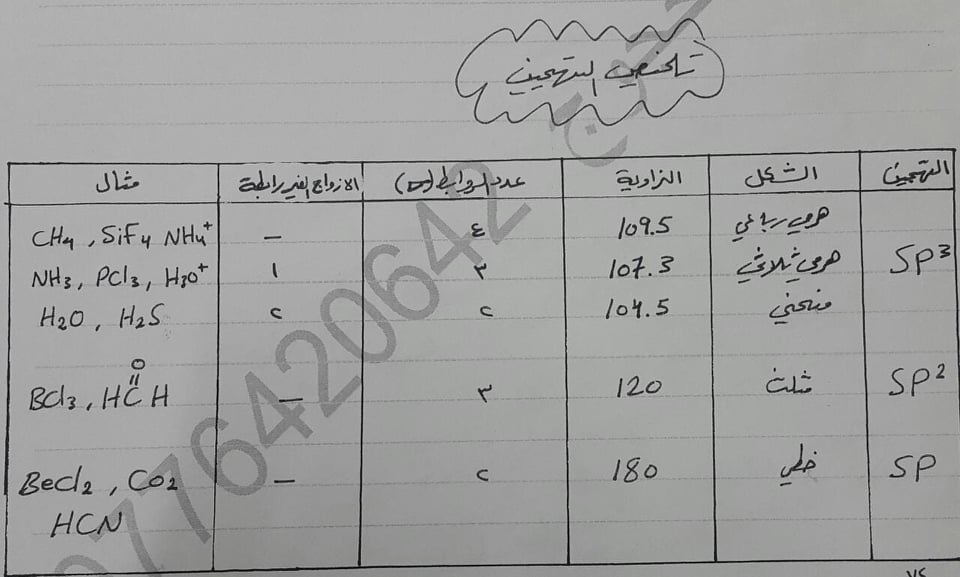 تلخيص التهجين
التهجين الشكل الزاوية عدد الروابط (σ) الازواج الغير رابطة مثال
SP³ هرمي رباعي 109.5 ٤ – CH4 , SiF4 NH4⁺
هرمي ثلاثي 107.3 ٣ ١ NH3, PCl3, H3O⁺
منحني 104.5 ٢ ٢ H2O , H2S
O
SP² مثلث 120 ٣ – BCl3 , HC̎H
SP خطي 180 ٢ – BeCl2 , CO2
HCN
0776420642
٧٤